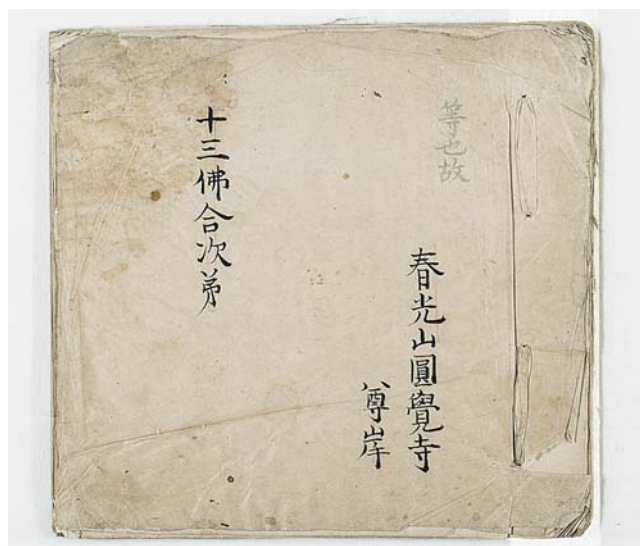 等也故
春光山圓覺寺
尊岸
十三佛合次第